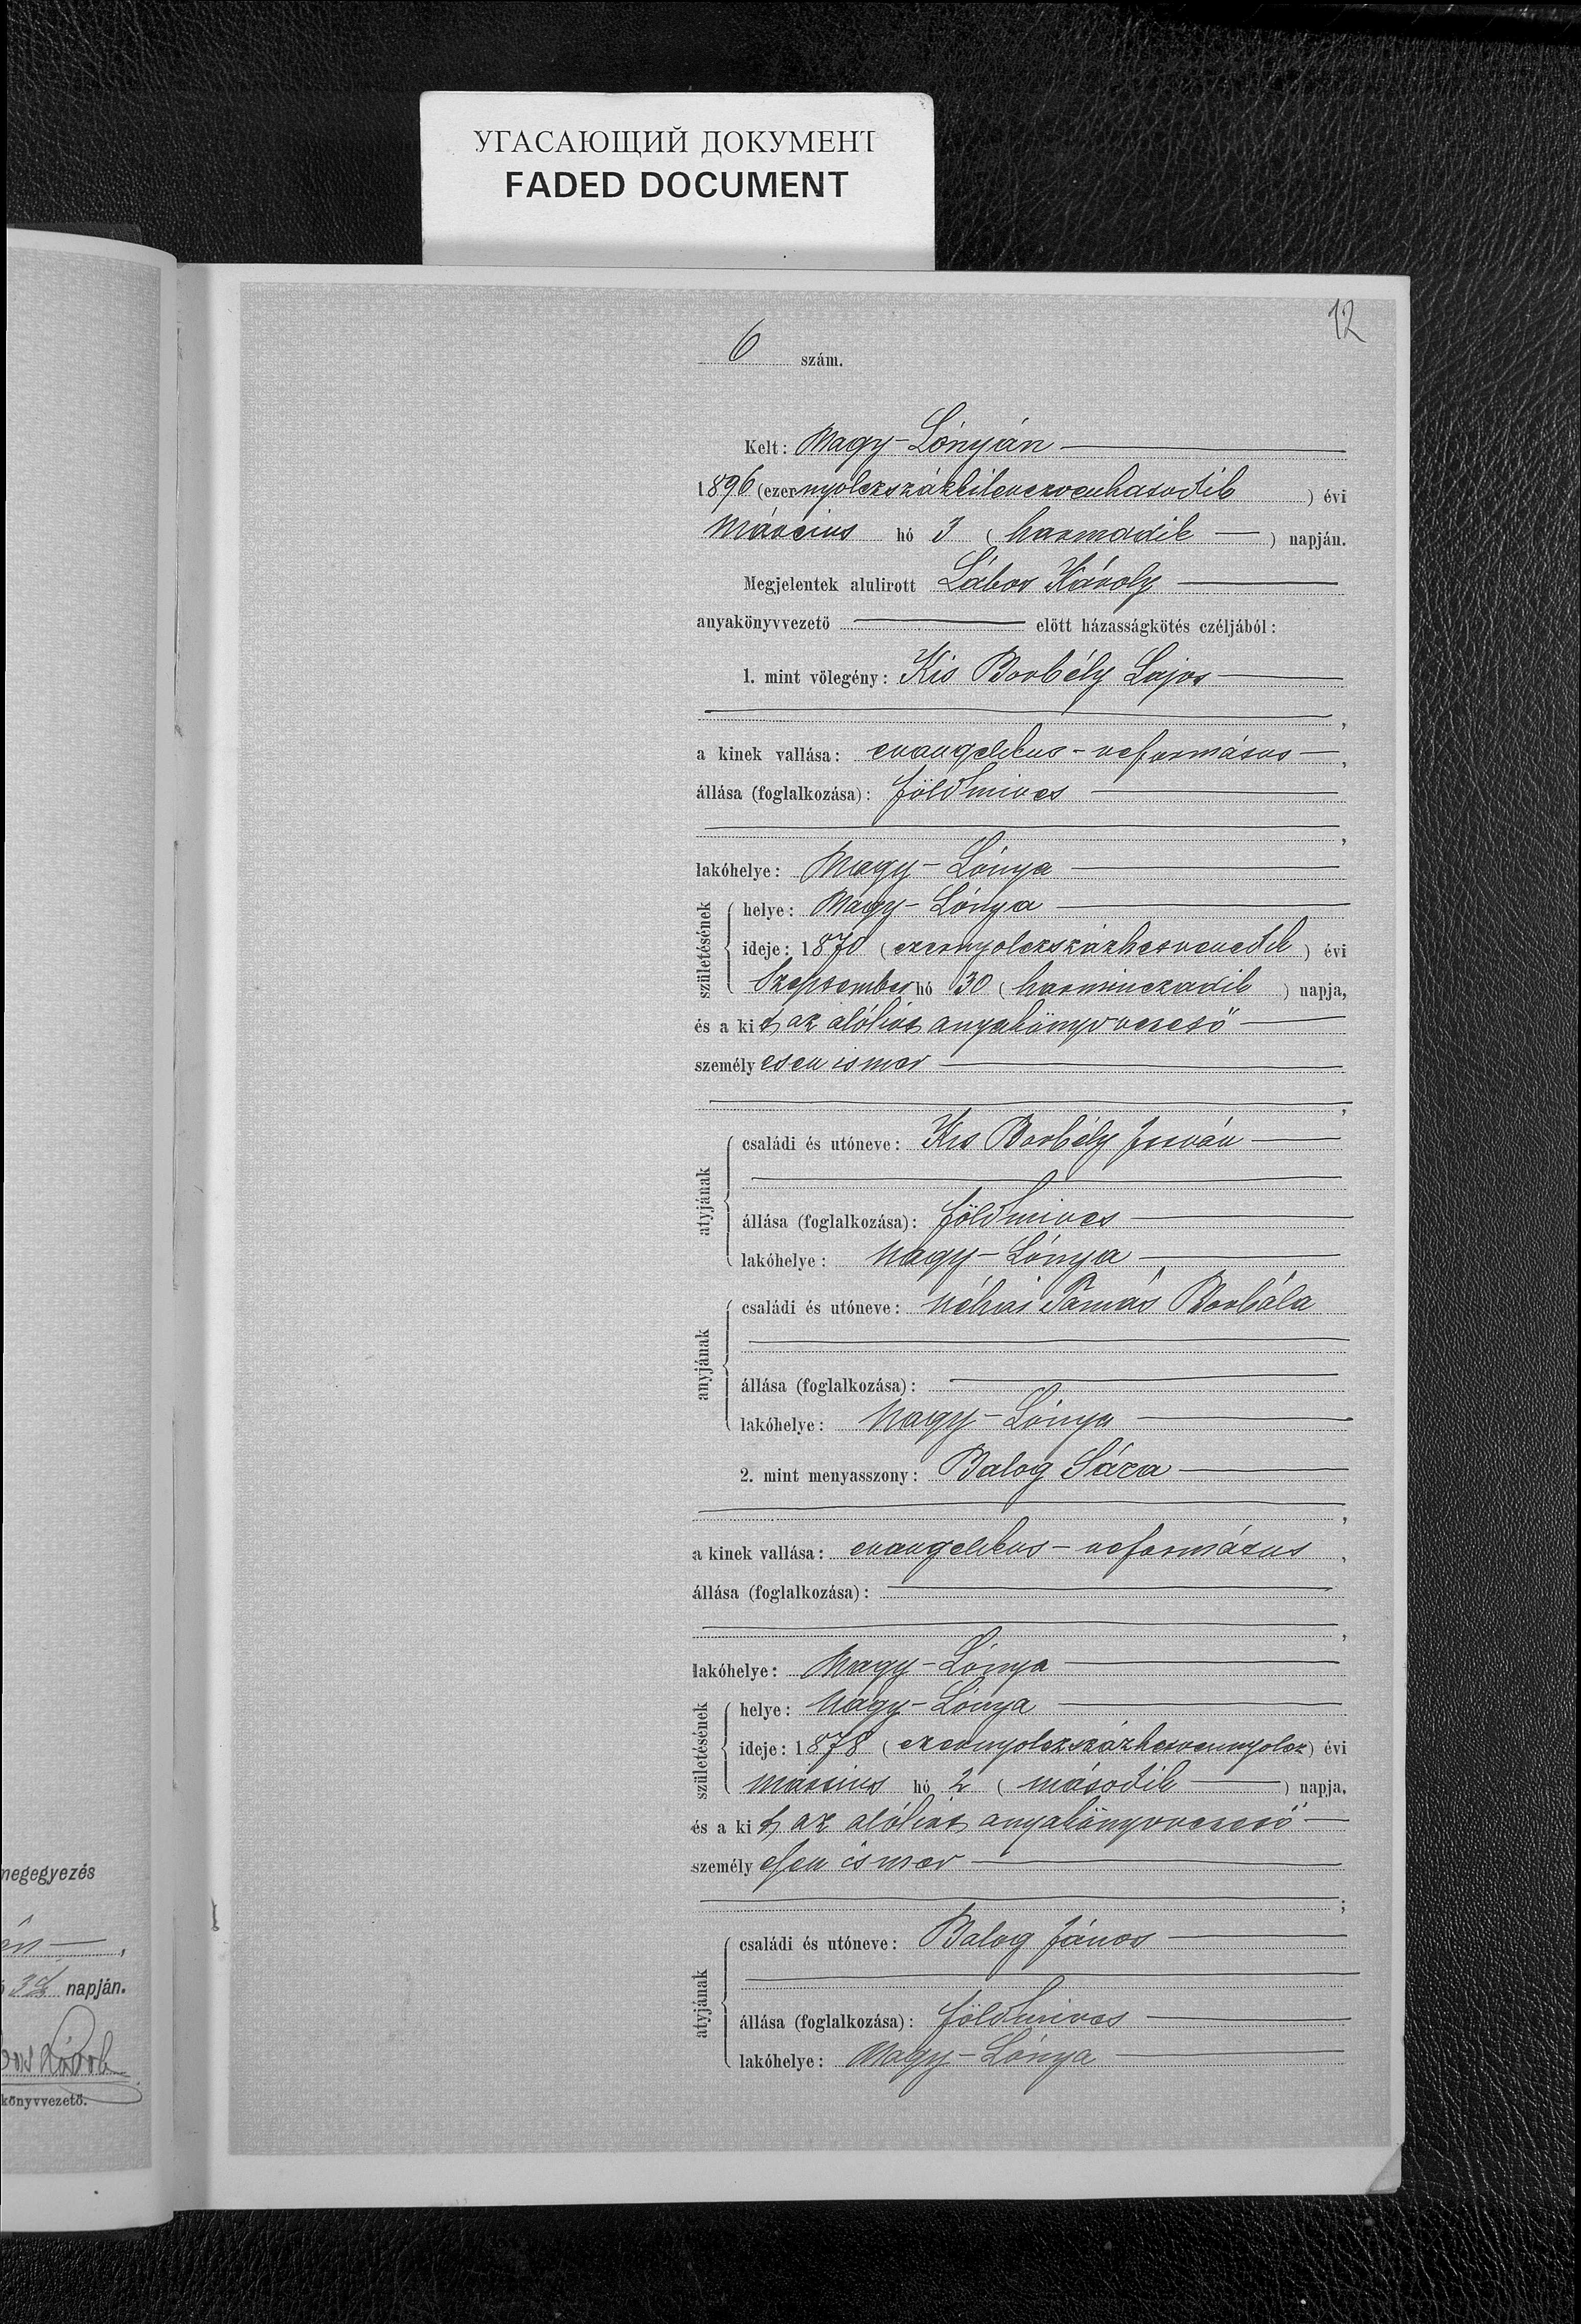 УГАСАЮЩИЙ ДОКУМЕНТ
FADED DOCUMENT
12
6 szám.
Kelt: Nagy-Lónyán
1896 (ezernyolczszázkilenczvenhatodik) évi
márczius hó 3 (harmadik) napján.
Megjelentek alulirott Lábos Károly
anyakönyvvezető előtt házasságkötés czéljából:
1. mint vőlegény: Kis Borbély Lajos
,
a kinek vallása: evangelikus-református,
állása (foglalkozása): földmives
,
lakóhelye: Nagy-Lónya
születésének
helye: Nagy-Lónya
ideje: 1870 (ezernyolczszázhetvenedik) évi
Szeptember hó 30 (harminczadik) napja,
és a kit, az alólirt anyakönyvvezető
személyesen ismer
,
atyjának
családi és utóneve: Kis Borbély István
állása (foglalkozása): földmives
lakóhelye: Nagy-Lónya
anyjának
családi és utóneve: néhai Tamás Borbála
állása (foglalkozása):
lakóhelye: Nagy-Lónya
2. mint menyasszony: Balog Sára
,
a kinek vallása: evangelikus-református,
állása (foglalkozása):
,
lakóhelye: Nagy-Lónya
születésének
helye: Nagy-Lónya
ideje: 1878 (ezernyolczszázhetvennyolcz) évi
márczius hó 2 (második) napja,
és a kit, az alólirt anyakönyvvezető
személyesen ismer
;
atyjának
családi és utóneve: Balog János
állása (foglalkozása): földmives
lakóhelye: Nagy-Lónya
megegyezés
napján.
könyvvezető.